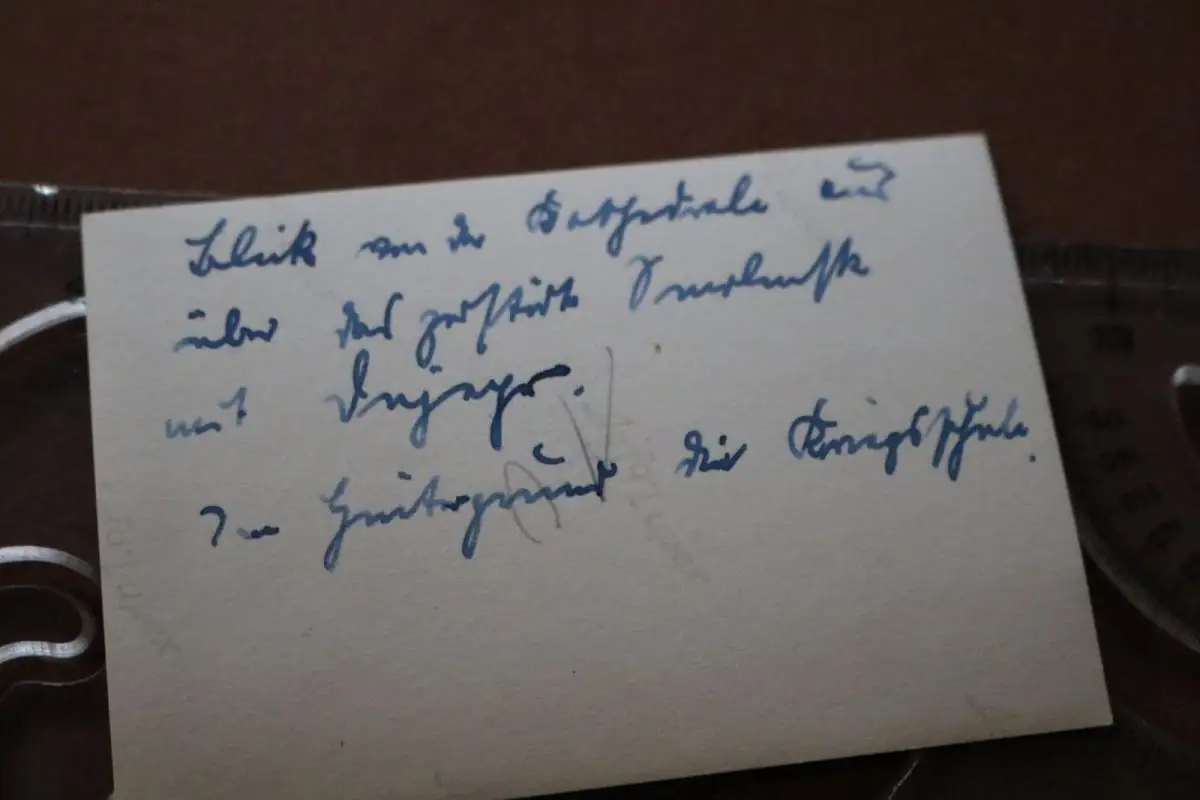 Blick von der Kathedrale aus
über das zerstörte Smolensk
mit Dnjepr.
Im Hintergrund die Kriegsschule.